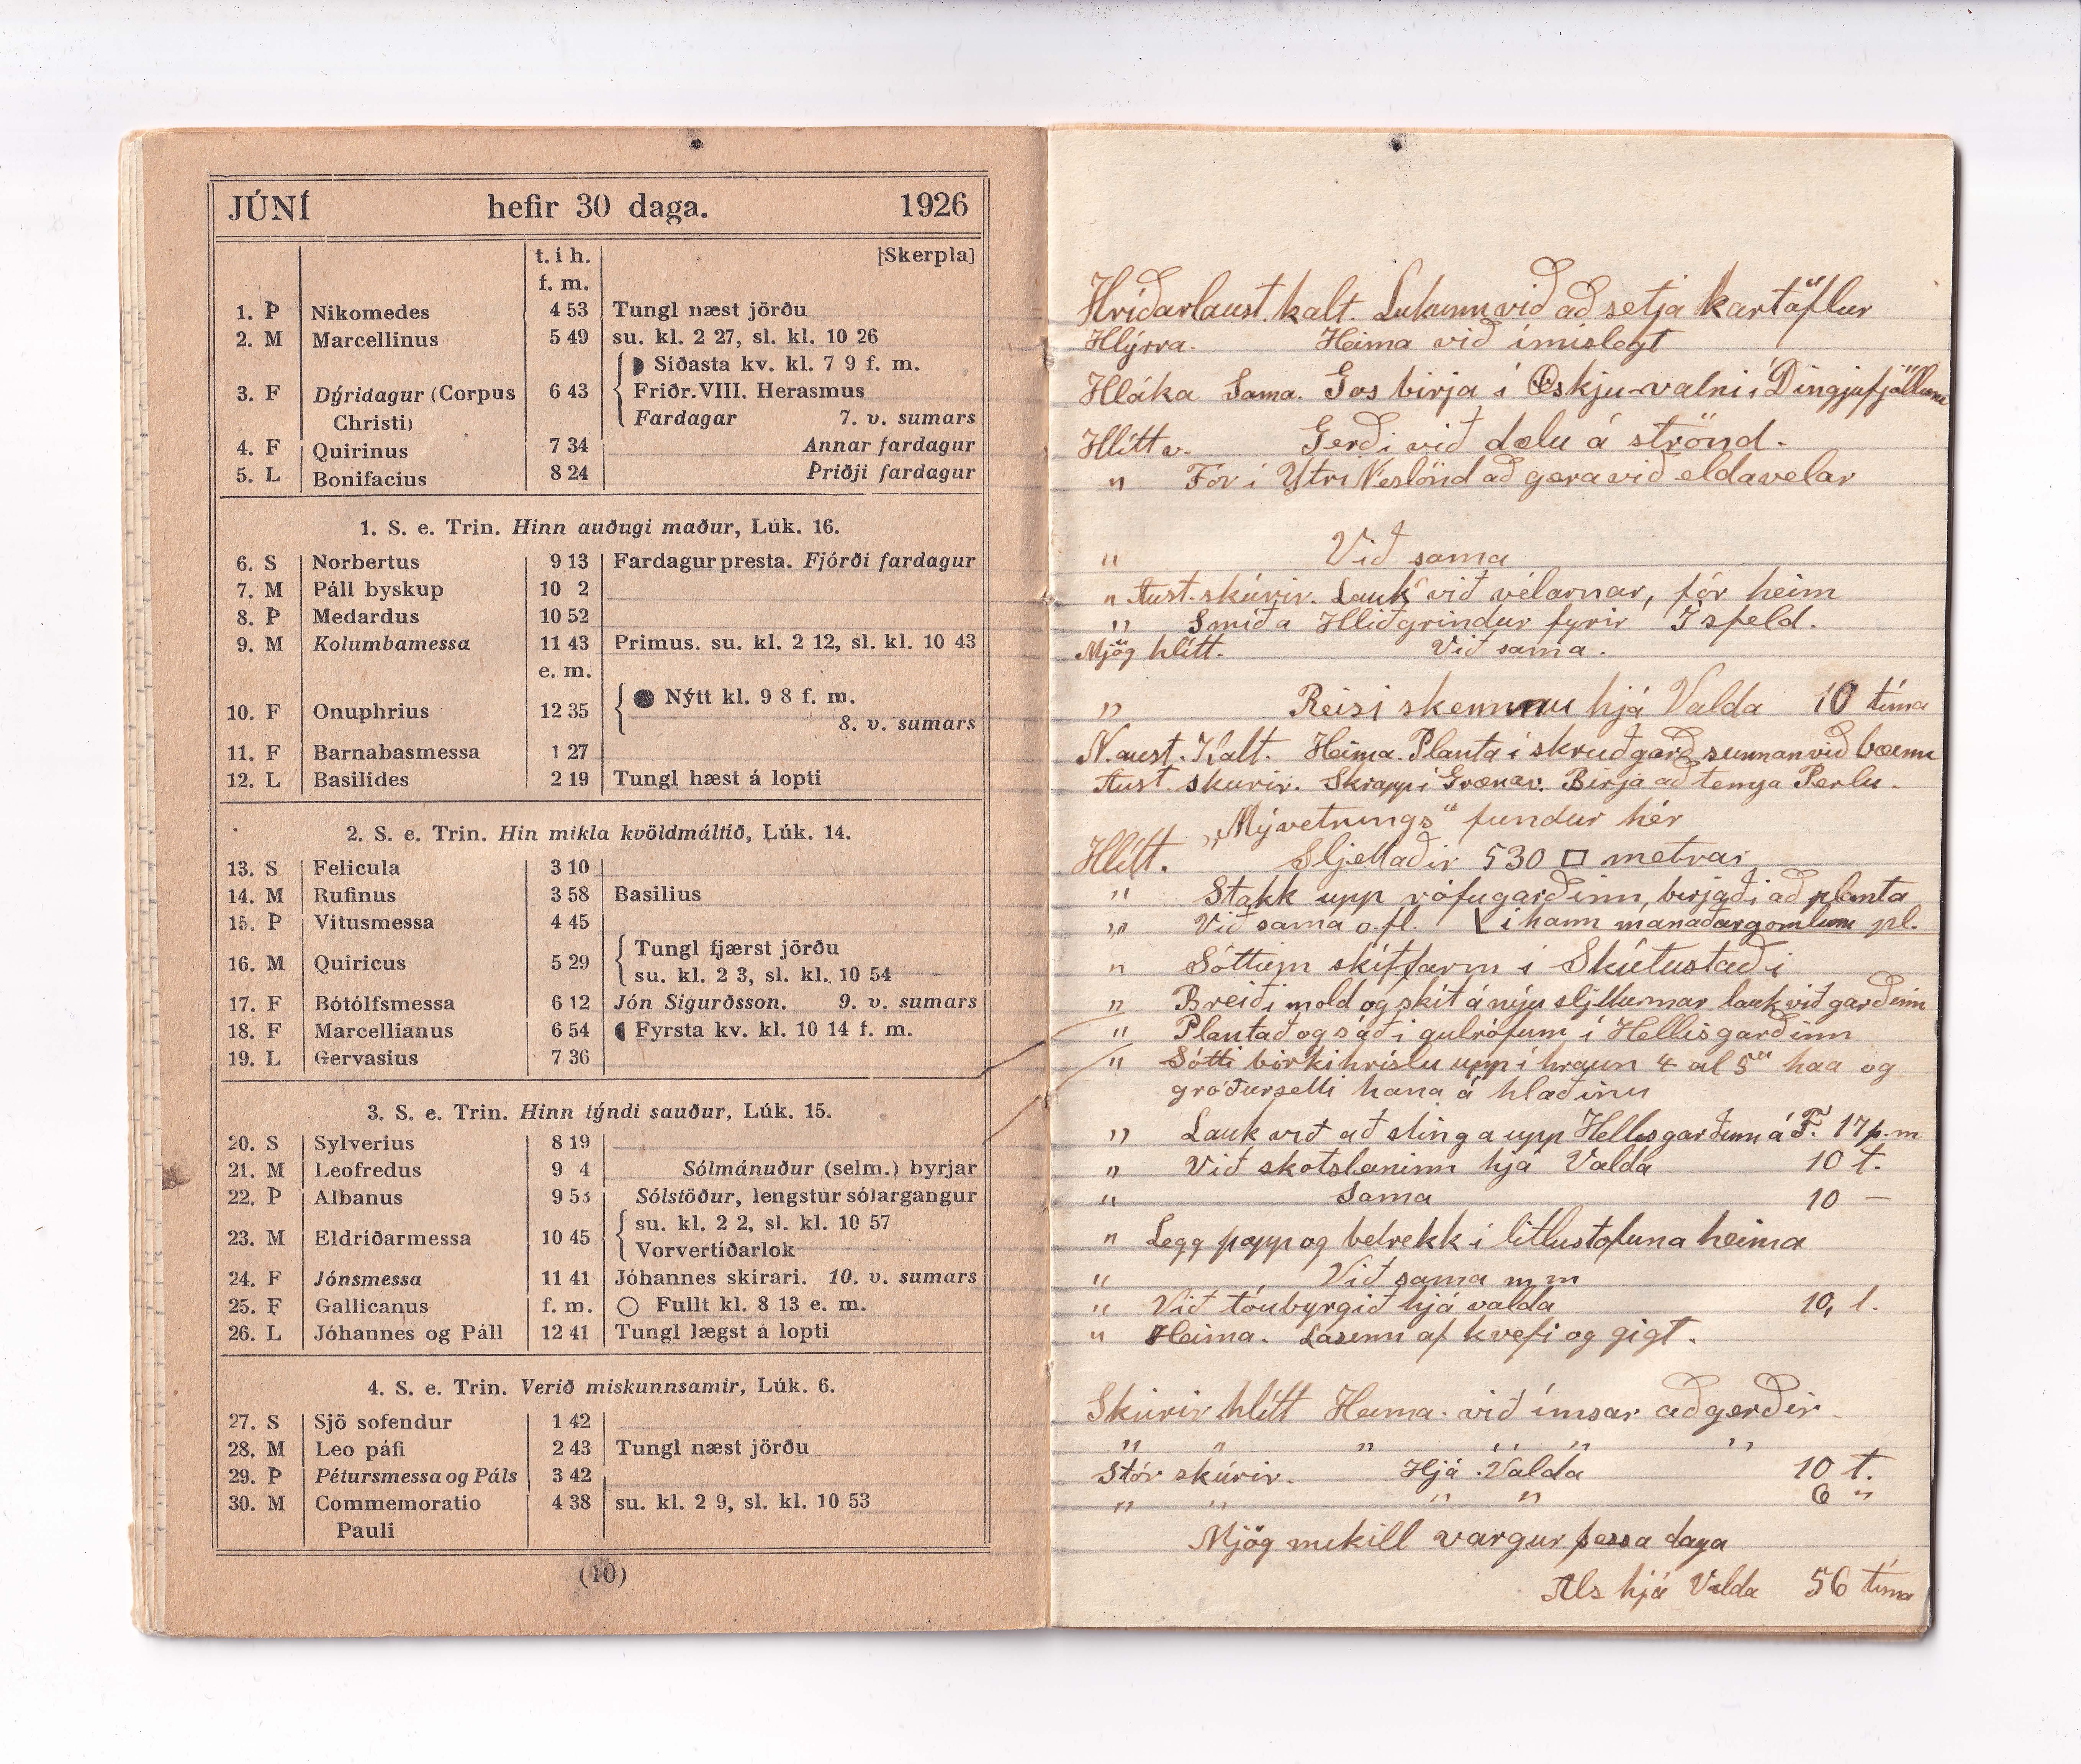 JÚNÍ hefir 30 daga. 1926
t. í h. [Skerpla]
f. m.
1. Þ Nikomedes 4 53 Tungl næst jörðu
2. M Marcellinus 5 49 su. kl. 2 27, sl. kl. 10 26
Síðasta kv. kl. 7 9 f. m.
3. F Dýridagur (Corpus 6 43 Friðr. VIII. Herasmus
Christi) Fardagar 7. v. sumars
4. F Quirinus 7 34 Annar fardagur
5. L Bonifacius 8 24 Þriðji fardagur
1. S. e. Trin. Hinn auðugi maður, Lúk. 16.
6. S Norbertus 9 13 Fardagur presta. Fjórði fardagur
7. M Páll byskup 10 2
8. Þ Medardus 10 52
9. M Kolumbamessa 11 43 Primus. su. kl. 2 12, sl. kl. 10 43
e. m.
● Nýtt kl. 9 8 f. m.
10. F Onuphrius 12 35
8. v. sumars
11. F Barnabasmessa 1 27
12. L Basilides 2 19 Tungl hæst á lopti
2. S. e. Trin. Hin mikla kvöldmáltíð, Lúk. 14.
13. S Felicula 3 10
14. M Rufinus 3 58 Basilius
15. Þ Vitusmessa 4 45
Tungl fjærst jörðu
16. M Quiricus 5 29
su. kl. 2 3, sl. kl. 10 54
17. F Bótólfsmessa 6 12 Jón Sigurðsson. 9. v. sumars
18. F Marcellianus 6 54 Fyrsta kv. kl. 10 14 f. m.
19. L Gervasius 7 36
3. S. e. Trin. Hinn týndi sauður, Lúk. 15.
20. S Sylverius 8 19
21. M Leofredus 9 4 Sólmánuður (selm.) byrjar
22. Þ Albanus 9 53 Sólstöður, lengstur sólargangur
su. kl. 2 2, sl. kl. 10 57
23. M Eldríðarmessa 10 45
Vorvertíðarlok
24. F Jónsmessa 11 41 Jóhannes skírari. 10. v. sumars
25. F Gallicanus f. m. ○ Fullt kl. 8 13 e. m.
26. L Jóhannes og Páll 12 41 Tungl lægst á lopti
4. S. e. Trin. Verið miskunnsamir, Lúk. 6.
27. S Sjö sofendur 1 42
28. M Leo páfi 2 43 Tungl næst jörðu
29. Þ Pétursmessa og Páls 3 42
30. M Commemoratio 4 38 su. kl. 2 9, sl. kl. 10 53
Pauli
(10)
Hríðarlaust. kalt. Lukumm við að setja kartöflur
Hlýrra. Heima við ímislegt
Hláka Sama. Gos birja í Öskju-vatni í Dingjufjöllum
Hlítt v. Gerði við dælu á strönd.
" Fór í Ytri Neslönd að gera við eldavelar
" Við sama
" Aust. skúrir. Lauk við vélarnar, fór heim
" Smíða Hliðgrindur fyrir Ísfeld.
Mjög hlítt. Við sama.
" Reisi skemmu hjá Valda 10 tíma
N. aust. Kalt. Heima. Planta í skruðgarð sunnan við bæinn
Aust. skurir. Skrapp í Grænav. Birja að temja Perlu.
" „Mývetnings“ fundur hér
Hlítt. Sljettaðir 530 □ metrar
" Stakk upp rófugarðinn, birjaði að planta
" Við sama o. fl. í hann mánaðargomlum pl.
" Sóttum skítfarm í Skútustaði
" Breiði mold og skít á nýju sljetturnar lauk við garðinn
" Plantað og sáði gulrófum í Hellisgarðinn
" Sótti birkihríslu upp í hraun 4 al 5" háa og
gróðursetti hana á hlaðinu
" Lauk við að stinga upp Hellisgarðinn á F. 17 p. m
" Við skotsleninn hjá Valda 10 t.
" Sama 10 —
" Legg papp og betrekk í litlustofuna heima
" Við sama m m
" Við tóubyrgið hjá valda 10, t.
" Heima. Lasinn af kvefi og gigt.
Skúrir hlítt Heima. við ímsar aðgerðir
" " " " " "
Stór skúrir. Hjá Valda 10 t.
" " " " 6 "
Mjög mikill vargur þessa daga
Als hjá Valda 56 tíma